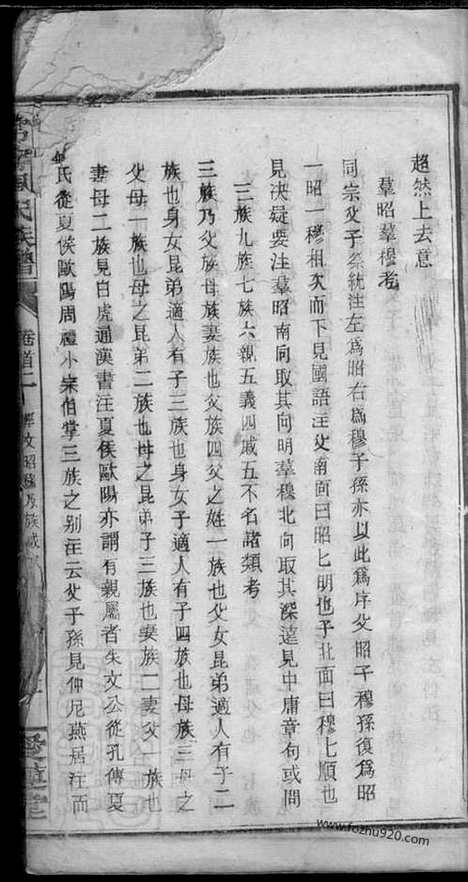 超然上去意
羣昭羣穆考
同宗父子祭統注左為昭右為穆子孫亦以此為序父昭子穆孫復為昭
一昭一穆相次而下見國語注父南面曰昭匕明也子北面曰穆匕順也
見决疑要注羣昭南向取其向明羣穆北向取其深遠見中庸章句或問
三族九族七族六親五義四戚五不名諸類考
三族乃父族母族妻族也父族四父之姓一族也父女昆弟適人有子二
族也身女昆弟適人有子三族也身女子適人有子四族也母族三母之
父母一族也母之昆弟二族也母之昆弟子三族也妻族二妻父一族也
妻母二族見白虎通漢書注夏侯歐陽亦謂有親屬者朱文公從孔傳夏
氏從夏侯歐陽周禮小宗伯掌三族之别注云父子孫見仲尼燕居注而
氏族譜
卷首二
昭穆及族戚
堂
www.fozhu920.com